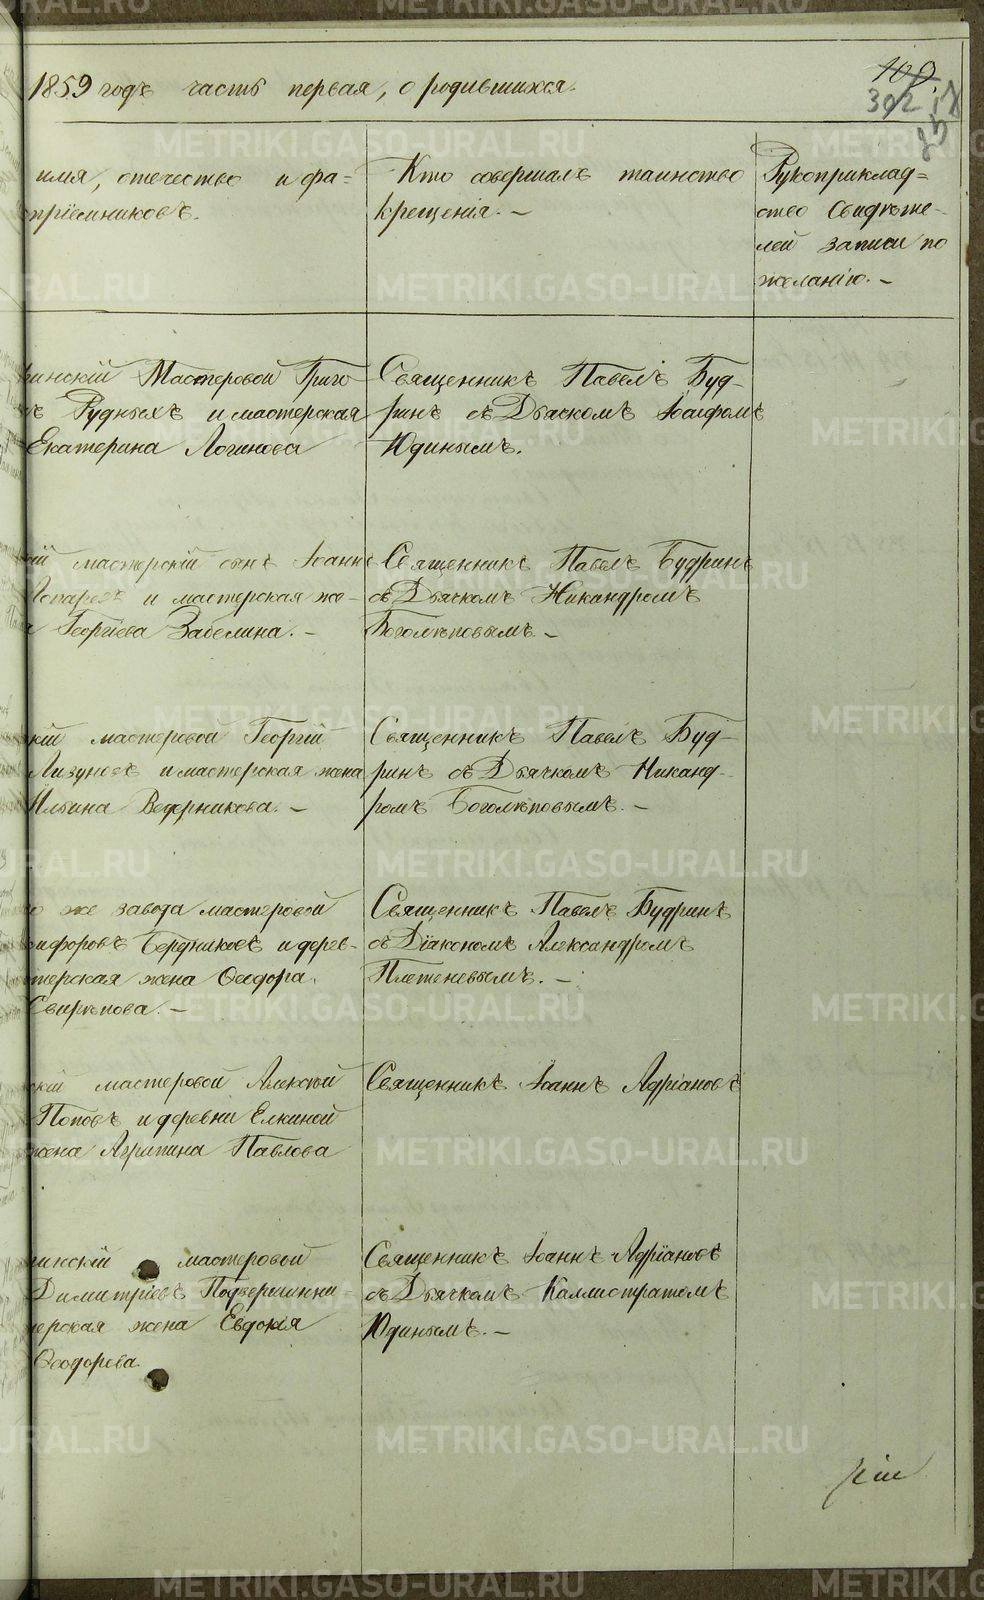 1859 годъ часть первая, о родившихся.
109
302
имя, отечество и фа=
пріемниковъ.
Кто совершалъ таинство
крещенія. —
Рукоприклад=
ство свидѣте-
лей записи по
желанію. —
инскій Мастеровой Григо
ъ Рудныхъ и мастерская
Екатерина Логинова
Священникъ Павелъ Буд-
ринъ съ Дьячкомъ Іосифомъ
Юдинымъ.
кій мастерскій сынъ Іоаннъ
и мастерская же-
а Георгіева Забелина. —
Священникъ Павелъ Будринъ
съ Дьячкомъ Никандромъ
Боголѣповымъ —
кій мастеровой Георгій
Лизуновъ и мастерская жена
Ильина Ведерникова. —
Священникъ Павелъ Буд-
ринъ съ Дьячкомъ Никанд-
ромъ Боголѣповымъ. —
о же завода мастеровой
ифоровъ Бердниковъ и дерев-
терская жена Ѳеодора
Свирѣпова. —
Священникъ Павелъ Будринъ
съ Діакономъ Александромъ
Плетеневымъ. —
скій мастеровой Алексѣй
Поповъ и деревни Елкиной
жена Агрипина Павлова
Священникъ Іоаннъ Адріановъ
инскій мастеровой
Димитріевъ
ерская жена Евдокія
Ѳеодорова.
Священникъ Іоаннъ Адріановъ
съ Дьячкомъ Каллистратомъ
Юдинымъ. —
METRIKI.GASO-URAL.RU